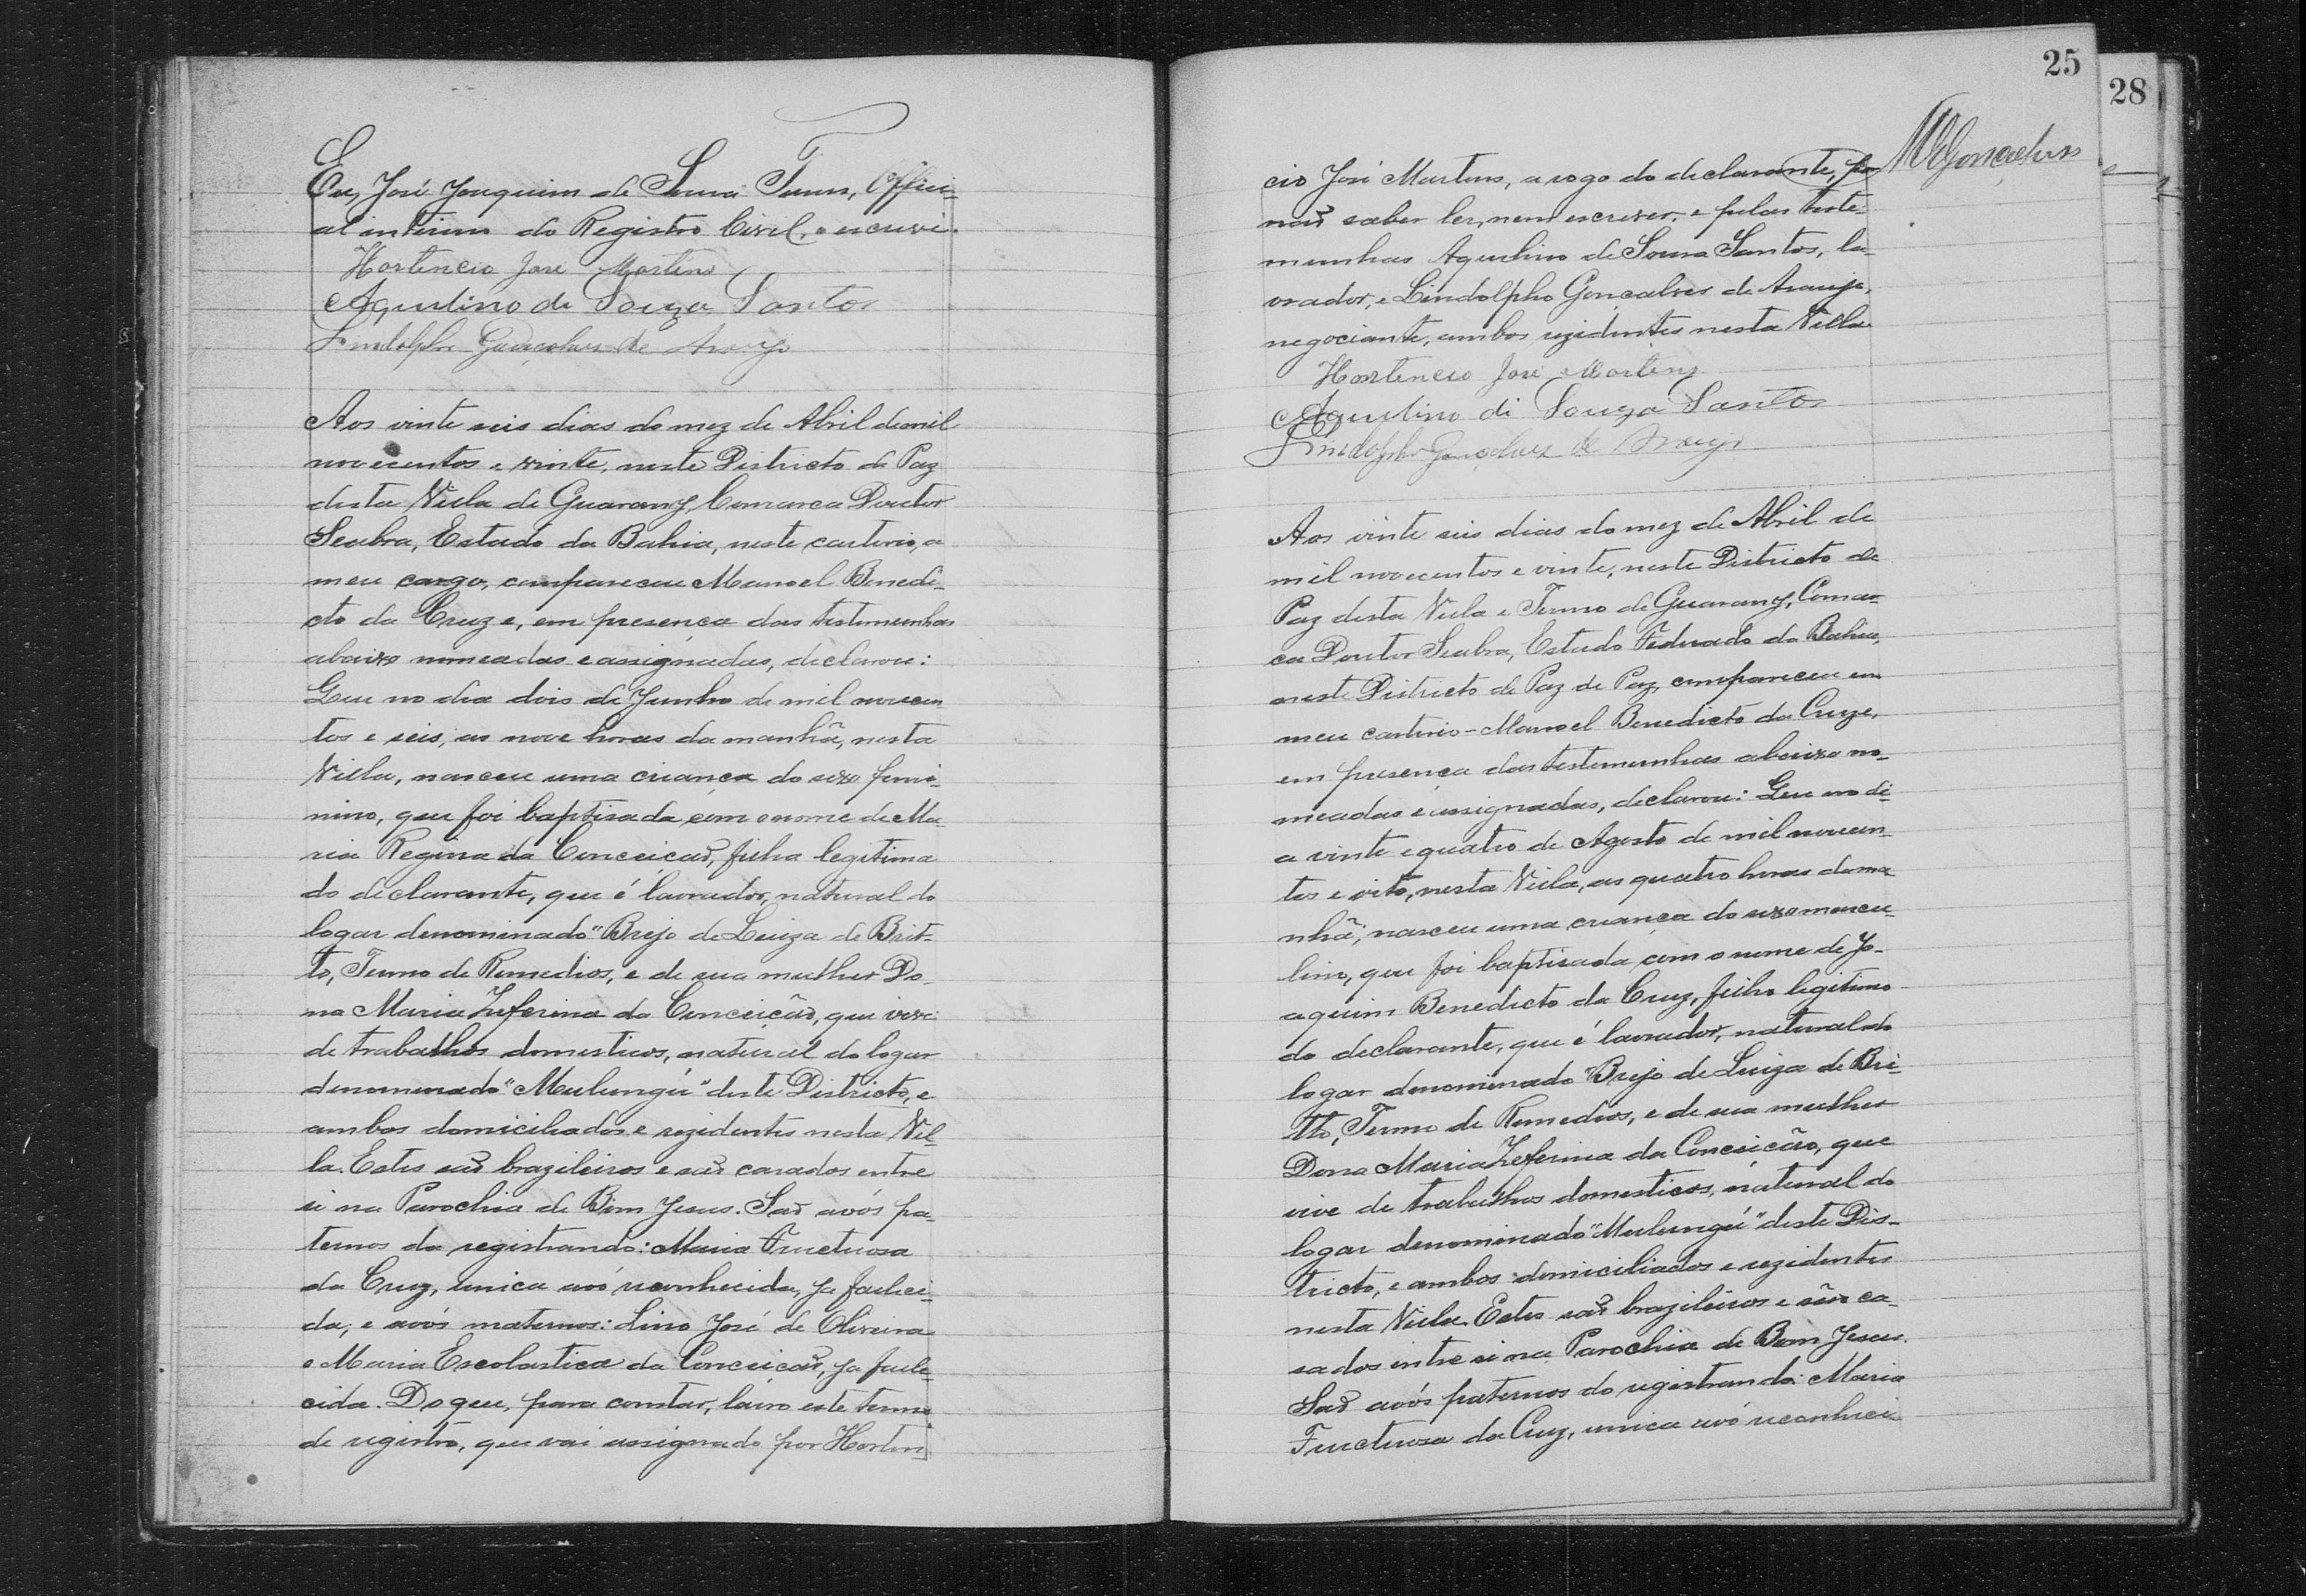 Eu, José Joaquim de Souza , Offici-
al interino do Registro Civil, o escrevi.
Hortencio Jose Martins
Agurlino de Souza Santos
Lindolpho Gonçalves de Araujo
Aos vinte seis dias do mez de Abril de mil
novecentos e vinte, neste Districto de Paz
desta Villa de Guarany, Comarca Doutor
Seabra, Estado da Bahia, neste cartorio, a
meu cargo, compareceu Manoel Benedi-
cto da Cruz e, em presença das testemunhas
abaixo nomeadas e assignadas, declarou:
Que no dia dois de Junho de mil novecen-
tos e seis, as nove horas da manhã, nesta
Villa, nasceu uma criança do sexo femi-
nino, que foi baptisada com o nome de Ma-
ria Regina da Conceição, filha legitima
do declarante, que é lavrador, natural do
logar denominado "Brejo de Luiza de Brit-
to, Termo de Remedios, e de sua mulher Do-
na Maria Zeferina da Conceição, que vive
de trabalhos domesticos, natural do logar
denominado "Mulungú" deste Districto, e
ambos domiciliados e rezidentes nesta Vil-
la. Estes são brazileiros e são casados entre
si na Parochia de Bom Jesus. São avós pa-
ternos da registrando: Maria Fructuosa
da Cruz, unica avó reconhecida, ja falleci-
da; e avós maternos: Lino José de Oliveira
e Maria Escolastica da Conceição, ja falle-
cida. Do que, para constar, lavro este termo
de registro, que vai assignado por Horten-
25
28
MGonçalves
cio José Martins, a rogo do declarante, por
não saber ler, nem escrever, e pelas teste-
munhas Agurlino de Souza Santos, la-
vrador, e Lindolpho Gonçalves de Araujo,
negociante, ambos rezidentes nesta Villa
Hortencio Jose Martins
Agurlino di Souza Santos
Lindolpho Gonçalves de Araujo
Aos vinte seis dias do mez de Abril de
mil novecentos e vinte, neste Districto de
Paz desta Villa e Termo de Guarany, Comar-
ca Doutor Seabra, Estado Federado da Bahia,
neste Districto de Paz de Paz, compareceu em
meu cartorio - Manoel Benedicto da Cruz e,
em presença das testemunhas abaixo no-
meadas e assignadas, declarou: Que no di-
a vinte e quatro de Agosto de mil novecen-
tos e oito, nesta Villa, as quatro horas da ma-
nhã, nasceu uma criança do sexo mascu-
lino, que foi baptisada com o nome de Jo-
aquim Benedicto da Cruz, filho legitimo
do declarante, que é lavrador, natural do
logar denominado "Brejo de Luiza de Bri-
tto, Termo de Remedios, e de sua mulher
Dona Maria Zeferina da Conceição, que
vive de trabalhos domesticos, natural do
logar denominado "Mulungú" deste Dis-
tricto, e ambos domiciliados e rezidentes
nesta Villa. Estes são brazileiros e são ca-
sados entre si na Parochia de Bom Jesus.
São avós paternos do registrando: Maria
Fructuosa da Cruz, unica avó reconheci-